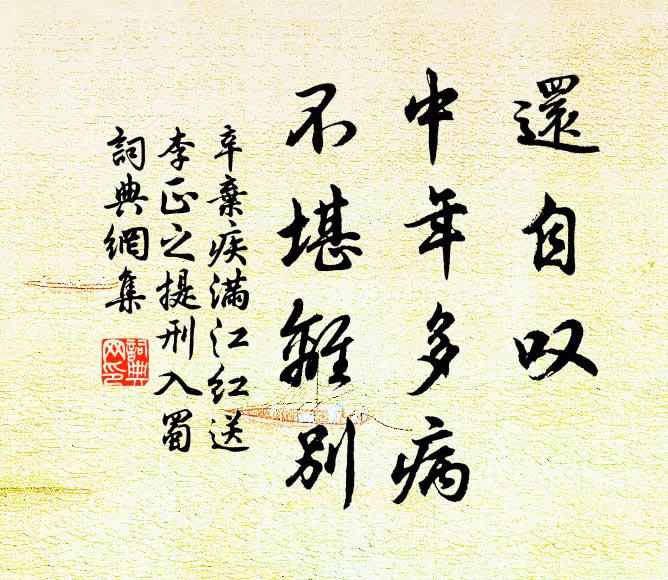 還自叹
中年多病
不堪離别
辛棄疾满江红送
李正之提刑入蜀
詞典網集
詞典网印